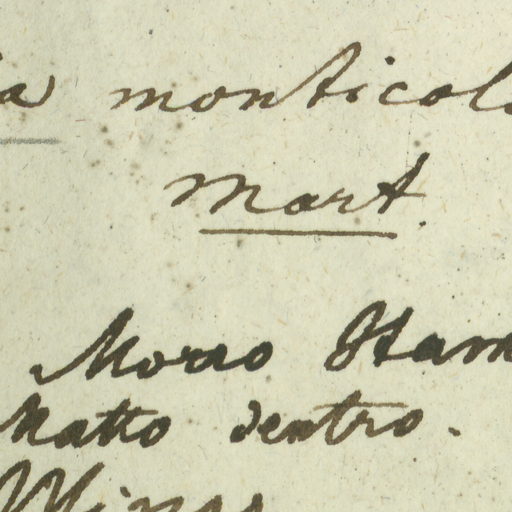 a monticola
Mart.
Morro Itam
Matto dentro.
Minas